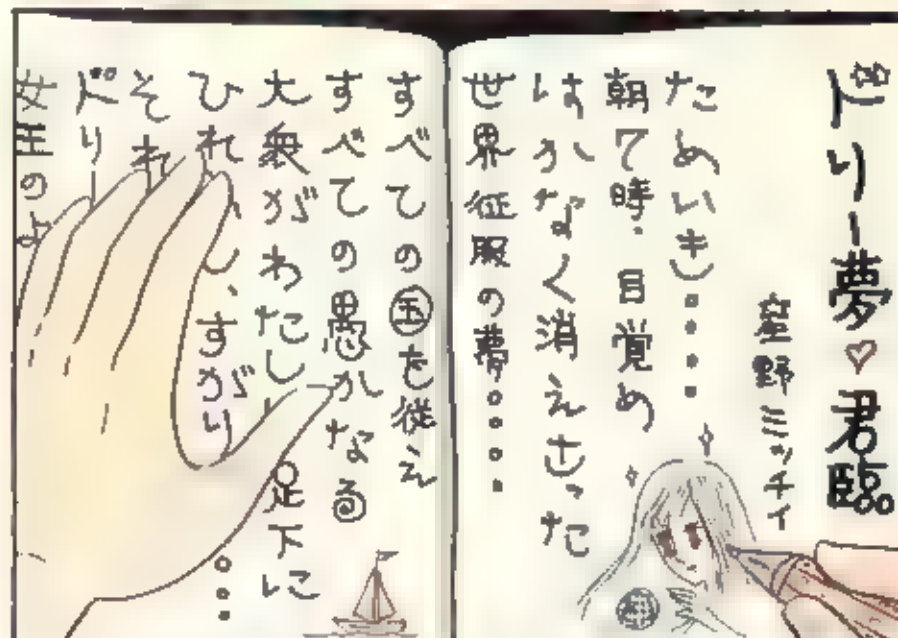 ドリー夢♡君臨
野ミッチイ
ためいき。。。。
朝7時、目覚め
はかなく消えさった
世界征服の夢。。。。
すべての国を従え
すべての愚かなる
大衆がわたし 足下に。。。
ひれ し、すがり
それ
ドリ
女王のよ